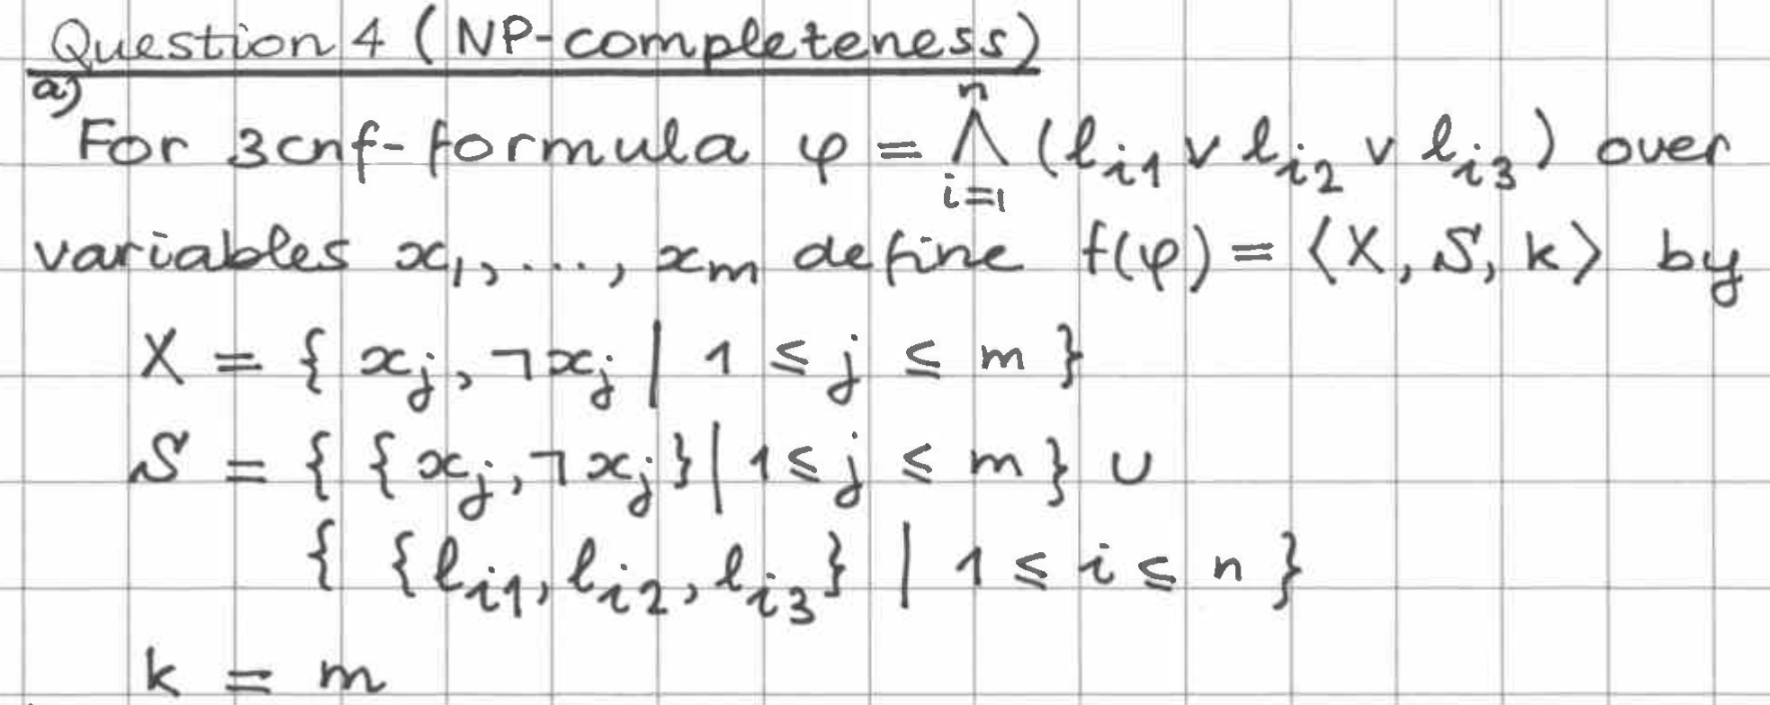 Question 4 (NP-completeness)
a)
For 3cnf-formula φ = ⋀ⁿᵢ₌₁ (ℓᵢ₁ ∨ ℓᵢ₂ ∨ ℓᵢ₃) over
variables x₁, ..., xₘ define f(φ) = ⟨X, S, k⟩ by
X = { xⱼ, ¬xⱼ | 1 ≤ j ≤ m }
S = { {xⱼ, ¬xⱼ} | 1 ≤ j ≤ m } ∪
{ {ℓᵢ₁, ℓᵢ₂, ℓᵢ₃} | 1 ≤ i ≤ n }
k = m